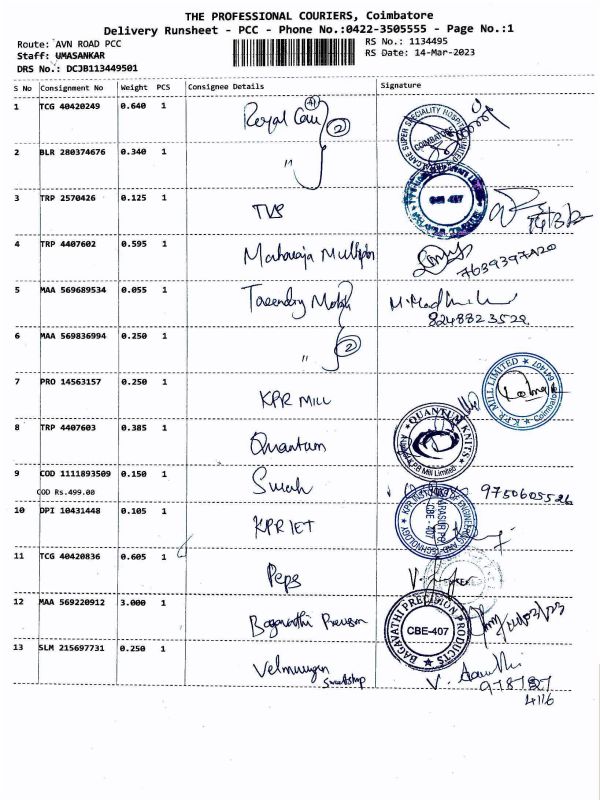 THE PROFESSIONAL COURIERS, Coimbatore
Delivery Runsheet - PCC - Phone No.:0422-3505555 - Page No.:1
Route: AVN ROAD PCC RS No.: 1134495
Staff: UMASANKAR RS Date: 14-Mar-2023
DRS No.: DCJB113449501
S No Consignment No Weight PCS Consignee Details Signature
1 TCG 40420249 0.640 1 Royal Care 4 2
SUPER SPECIALITY HOSPITAL COIMBATORE
2 BLR 280374676 0.340 1 "
3 TRP 2570426 0.125 1 TVS
641 407
4 TRP 4407602 0.595 1 Maharaja Multiplex
7639397420
5 MAA 569689534 0.055 1
8248823529
6 MAA 569836994 0.250 1 " 2
7 PRO 14563157 0.250 1 KPR MILL
K.P.R. MILL LIMITED Coimbatore 641407
8 TRP 4407603 0.385 1 Quantum
QUANTUM KNITS Mill Limited
9 COD 1111893509 0.150 1 9750605526
COD Rs.499.00
10 DPI 10431448 0.105 1 KPR IET
KPR INSTITUTE OF ENGINEERING AND TECHNOLOGY CBE - 407
11 TCG 40420836 0.605 1 Peps
12 MAA 569220912 3.000 1 Bagavathi Precision
BAGAVATHI PRECISION PRODUCTS CBE-407
13 SLM 215697731 0.250 1 Velmurugan
Sweetshop
978787
4116